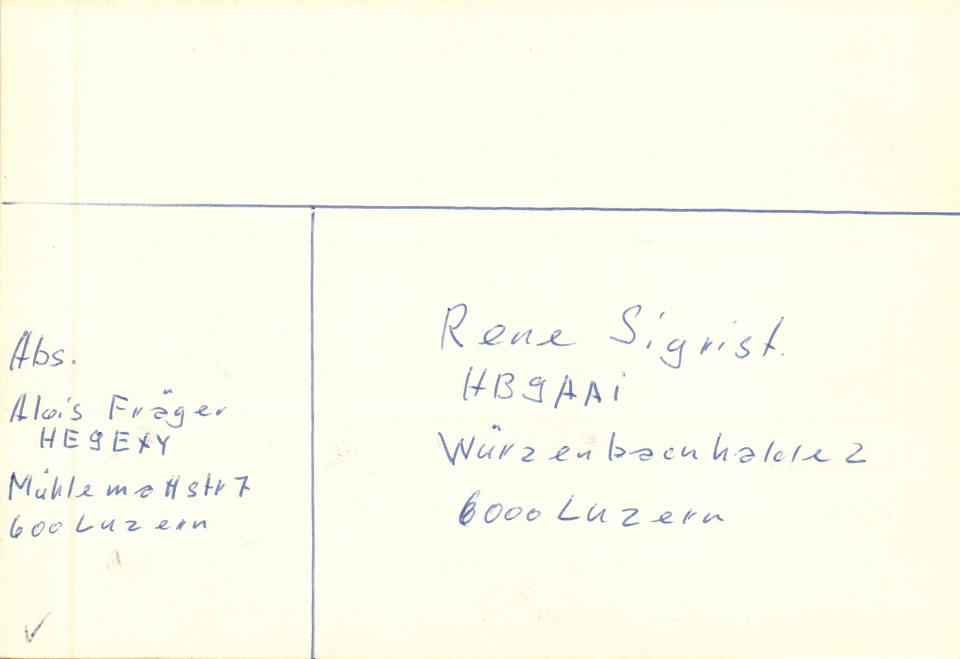 Abs.
Alois Fräger
HE9EXY
Mühlemattstr 7
600 Luzern
Rene Sigrist.
HB9AAi
Würzenbachhalde 2
6000 Luzern